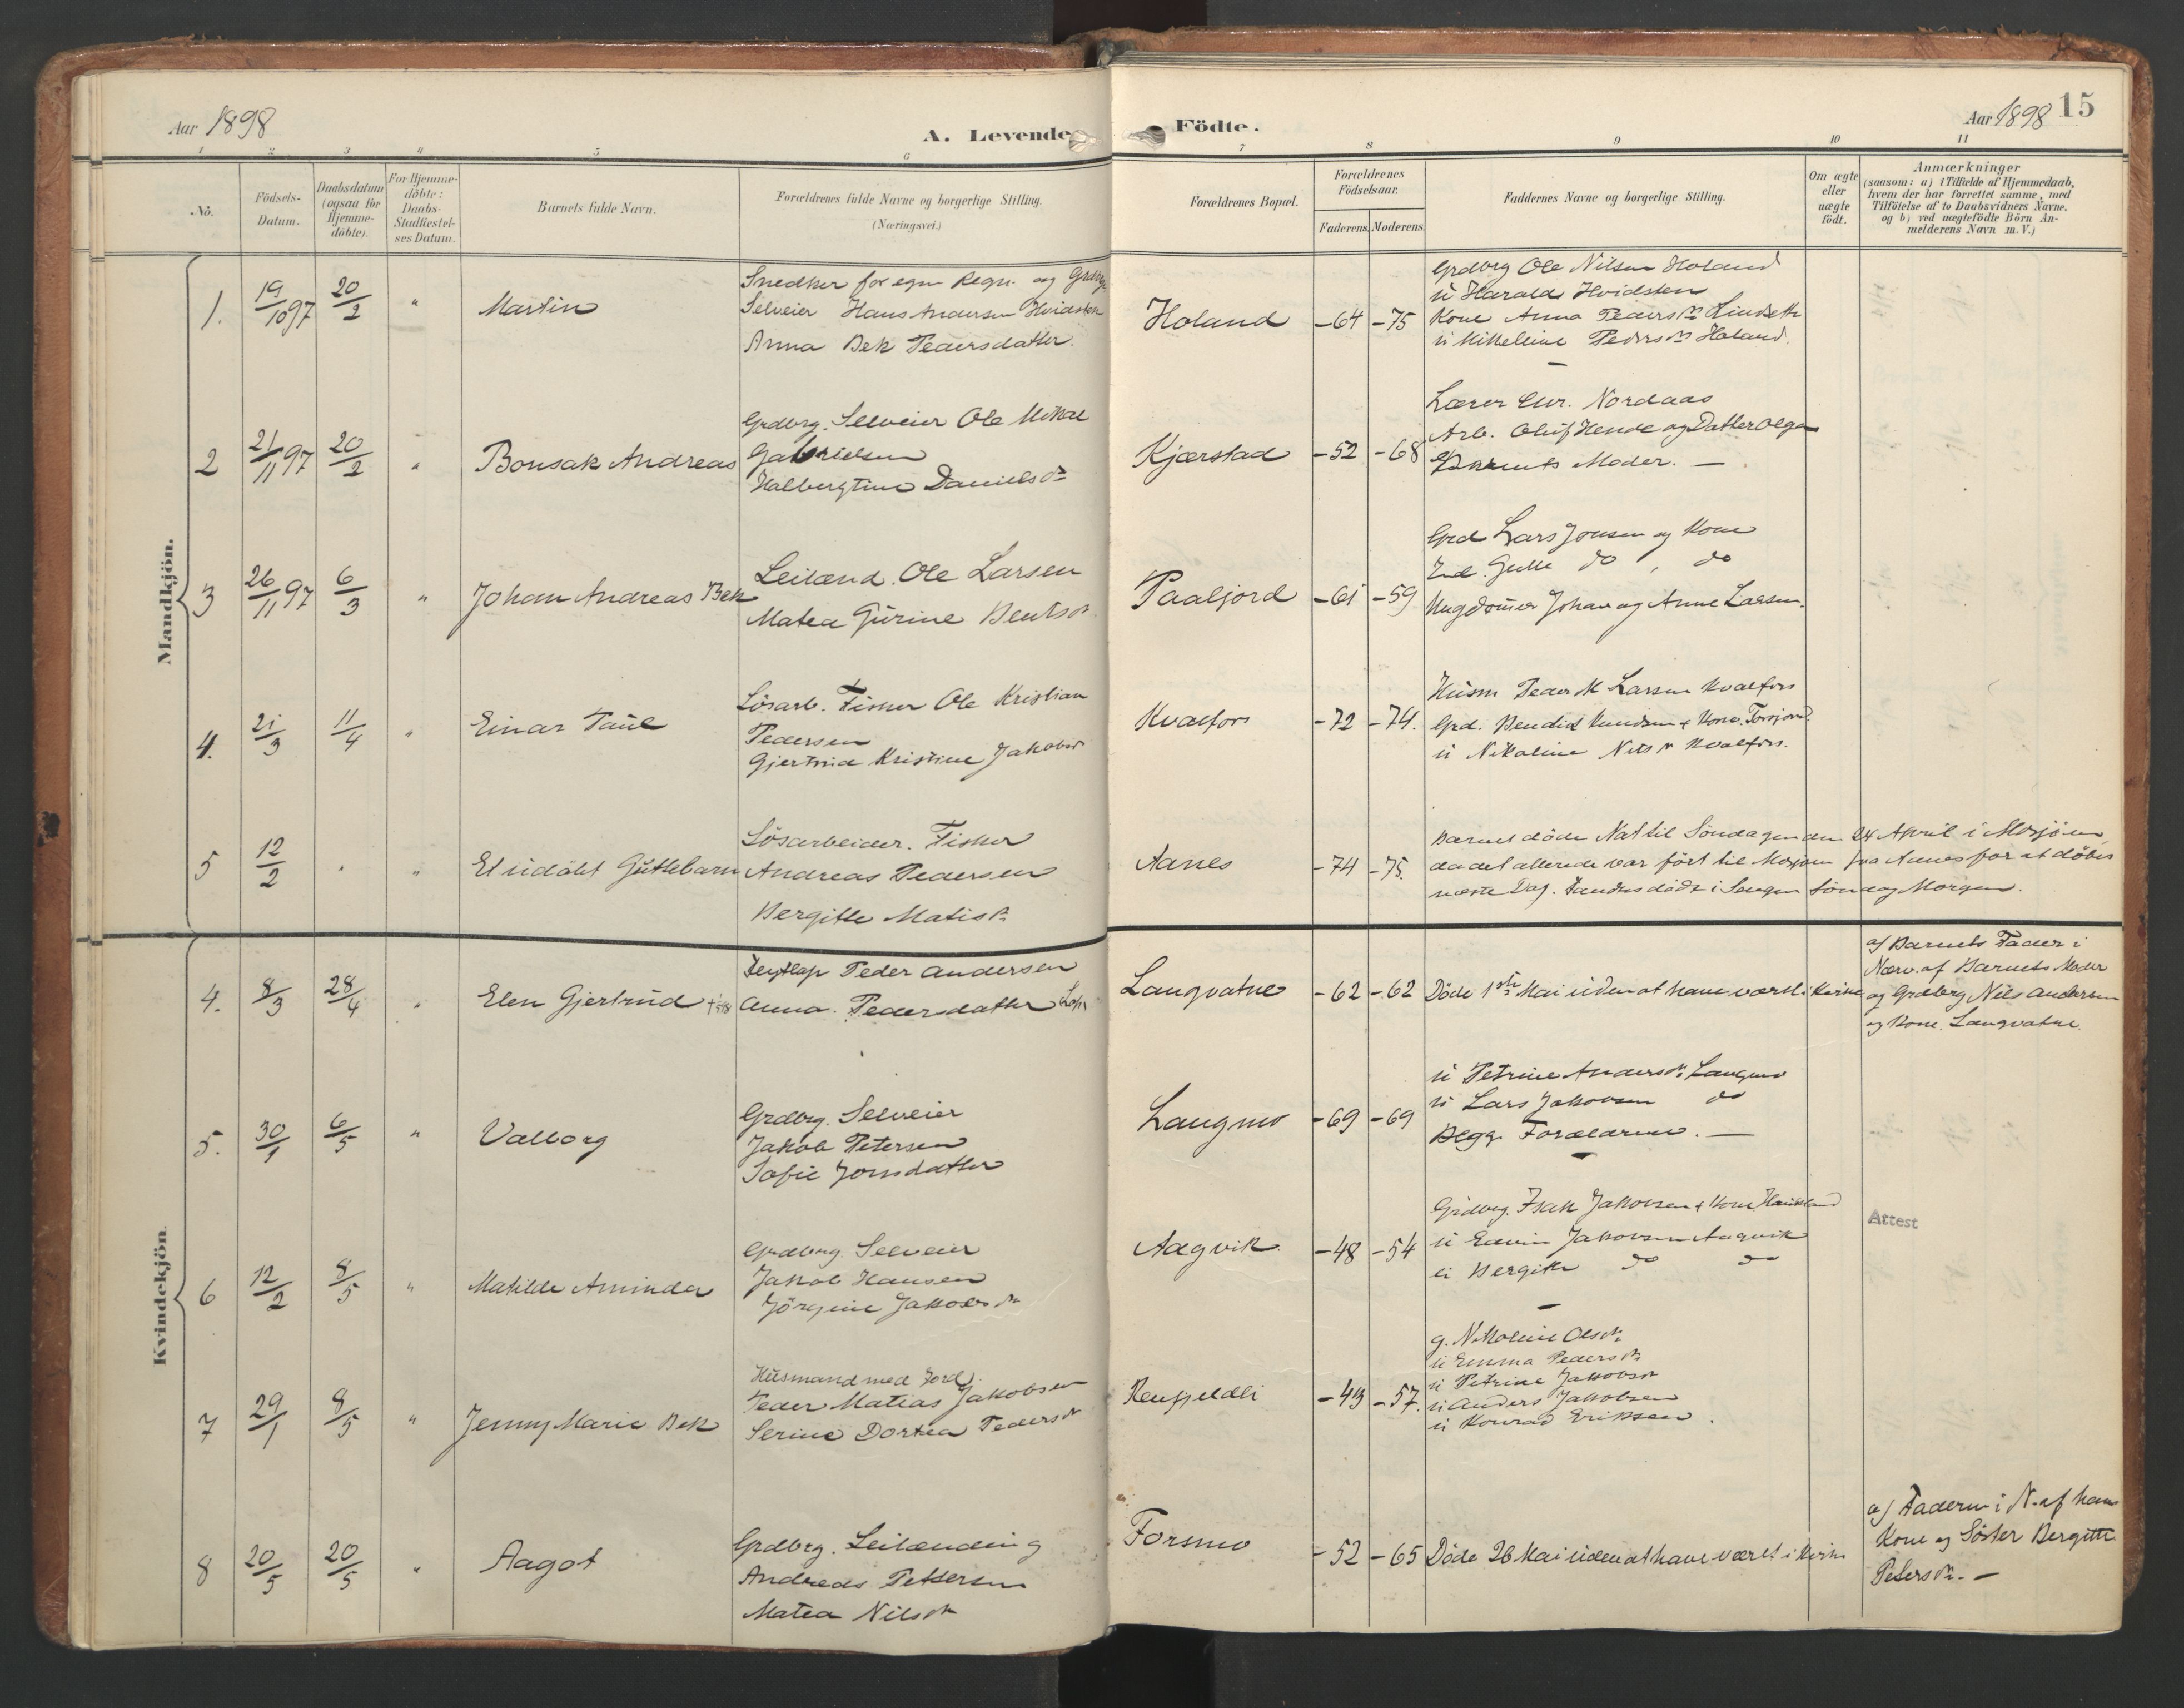 Aar 1898
A. Levende
Födte.
Aar 1898
15
1 2 3 4 5 6 7 8 9 10 11
No.
Födsels-
Datum.
Daabsdatum
(ogsaa for
Hjemme-
döbte).
For Hjemme-
döbte:
Daabs-
Stadfæstel-
ses Datum.
Barnets fulde Navn.
Forældrenes fulde Navne og borgerlige Stilling.
(Næringsvei.)
Forældrenes Bopæl.
Forældrenes
Födselsaar.
Faderens. Moderens.
Faddernes Navne og borgerlige Stilling.
Om ægte
eller
uægte
födt.
Anmærkninger
(saasom: a) i Tilfælde af Hjemmedaab,
hvem der har forrettet samme, med
Tilföielse af to Daabsvidners Navne.
og b) ved uægtefödte Börn An-
melderens Navn m. V.)
Mandkjön.
1. 19/10 97 20/2 " Martin
Snedker for egn Regn. og Grdbrg
Selveier Hans Andersen Hvidsten
Anna Bek Pedersdatter.
Holand -64 -75
Grdbrg Ole Nilsen Holand
u Harald Hvidsten
Kone Anna Pedersdr Lindseth
u Mikeline Pedersdr Holand.
2 21/11 97 20/2 " Bonsak Andreas
Grdbrg. Selveier Ole Mikal
Gabrielsen
Halbergtine Danielsdr
Kjærstad -52 -68
Lærer Chr. Nordaas
Arb. Oluf Hende og Datter Olga
Barnets Moder. —
3 26/11 97 6/3 " Johan Andreas Bek
Leilænd. Ole Larsen
Matea Gurine Bentsdr.
Paaljord -61 -59
Grd Lars Jonsen og Kone
End. Gulle do , do
Ungdomer Johan og Anne Larsen.
4. 21/3 11/4 " Einar Paul
Lösarb. Fisker Ole Kristian
Pedersen
Gjertrud Kristine Jakobsd
Kvalfors -72 -74.
Husm Peder M Larsen Kvalfors
Grd. Bendik Knudsen + Kone. Forsjord.
u Nikoline Nilsdr Kvalfors.
5 12/2 " " Et udöbt Guttebarn
Lösarbeider. Fisker
Andreas Pedersen
Bergitte Matisdr.
Aanes -74 -75.
Barnet döde Nat til Söndagen den 24 April i Mosjöen,
da det allerede var fört til Mosjöen fra Aanes for at döbes
næste Dag. Fandtes död i Sengen Söndag Morgen.
Kvindekjön.
4. 8/3 28/4 " Elen Gjertrud
Peder Andersen
Anna. Pedersdatter
Langvatne -62 -62 Döde 1ste Mai uden at have været i Kirke
a) Barnets Fader i
Nærv. af Barnets Moder
og Grdbrg Nils Andersen
og Kone. Langvatne.
5. 30/1 6/5 " Valborg
Grdbrg. Selveier
Jakob Petersen
Sofie Jonsdatter
Langmo -69 -69
u Petrine Andersdr. Langmo
u Lars Jakobsen do
Begge Forældrene. —
6 12/2 8/5 " Matilde Aminda
Grdbrg. Selveier
Jakob Hansen
Jörgine Jakobsdr
Aagvik. -48 -54
Grdbrg. Isak Jakobsen + Kone
u Edvin Jakobsen Aagvik
u Bergitte do do
Attest
7 29/1 8/5 " Jenny Marie Bek
Husmand med Jord.
Peder Matias Jakobsen
Serine Dortea Pedersdr
Renfjeldli -43 -57.
g. Nikoline Olsdr.
u Emma Pedersdr.
u Petrine Jakobsdr
u Anders Jakobsen
u Konrad Eriksen.
8 20/5 20/5 " Aagot
Grdbrg. Leilænding
Andreas Pettersen
Matea Nilsdr
Forsmo -52 -65 Döde 26 Mai uden at have været i Kirke
a) Faderen i N. af hans
Kone og Söster Bergitte
Petersdr. —